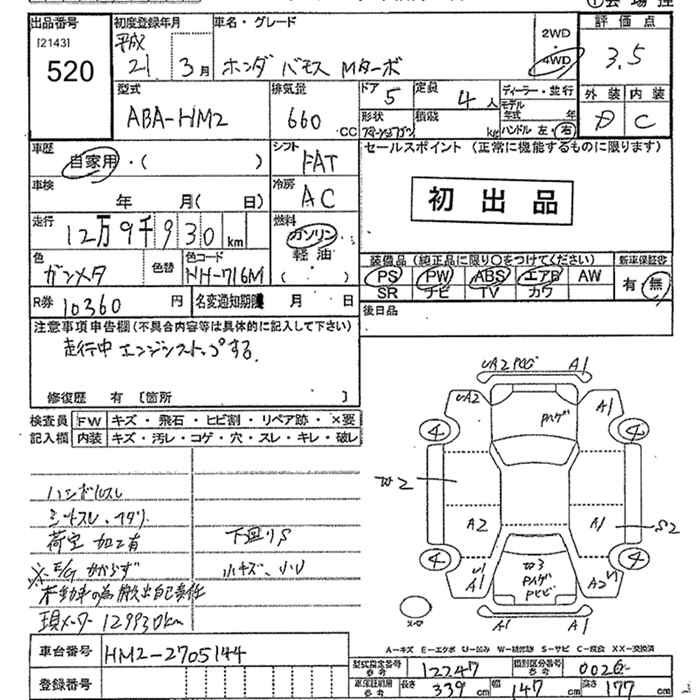 出品番号 初度登録年月 車名・グレード 評価点
[2143] 平成 2WD
520 21年 3月 ホンダ バモス Mターボ 4WD 3.5
型式 排気量 ドア 5 定員 4人 ディーラー・並行 外装 内装
ABA-HM2 660 CC 形状 積載 kg モデル年式 年 D C
ハンドル 左・右
車歴 シフト セールスポイント (正常に機能するものに限ります)
自家用・( ) FAT
車検 冷房 初出品
年 月( 日) AC
走行 燃料
12万9千930km ガソリン
色 色替 色コード 軽油 装備品 (純正品に限り○をつけてください) 新車保証書
ガンメタ NH-716M ( ) PS PW ABS エアB AW 有・無
SR ナビ TV カワ
R券 10360円 名変通知期限 月 日 後日品
注意事項申告欄(不具合内容等は具体的に記入して下さい)
走行中エンジンストップする.
修復歴 有 [箇所 ]
検査員 FW キズ・飛石・ヒビ割・リペア跡・×要
記入欄 内装 キズ・汚レ・コゲ・穴・スレ・キレ・破レ
UA2 A1
UA2 A1
Pハゲ
4 4
W2
A2 A1 S2
4 4
A1 A2
Pハゲ
Pヒビ
A1 A1
ハンドルスレ
シートスレ・
荷室 加工有 下回りS
※E/Gかからず 小キズ、小U
不動車の為搬出自己責任
現メーター 129930km
A-キズ E-エクボ U-凹み W-補修跡 S-サビ C-腐食 XX-交換済
車台番号 HM2-2705144
型式指定番号 参考 12247 類別区分番号 参考
登録番号 車体証明用 参考 長さ 339cm 幅 147cm 高さ 177cm